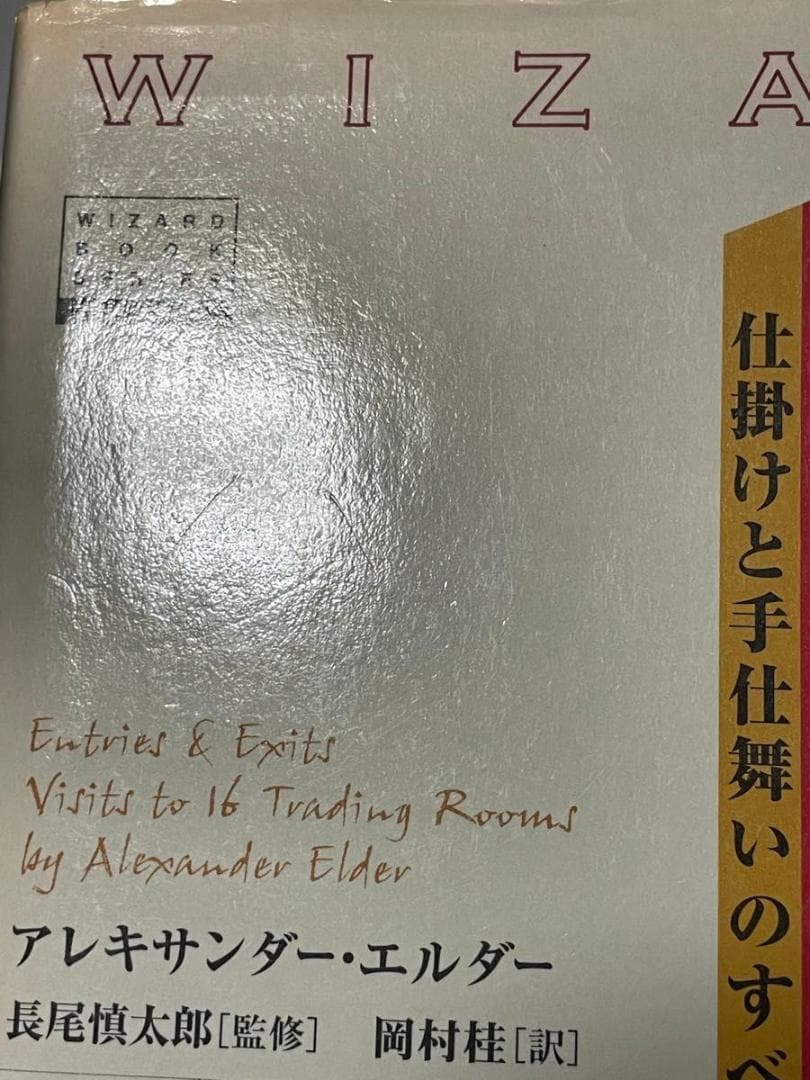 WIZA
WIZARD
BOOK
仕掛けと手仕舞いのすべ
Entries & Exits
Visits to 16 Trading Rooms
by Alexander Elder
アレキサンダー・エルダー
長尾慎太郎[監修] 岡村桂[訳]